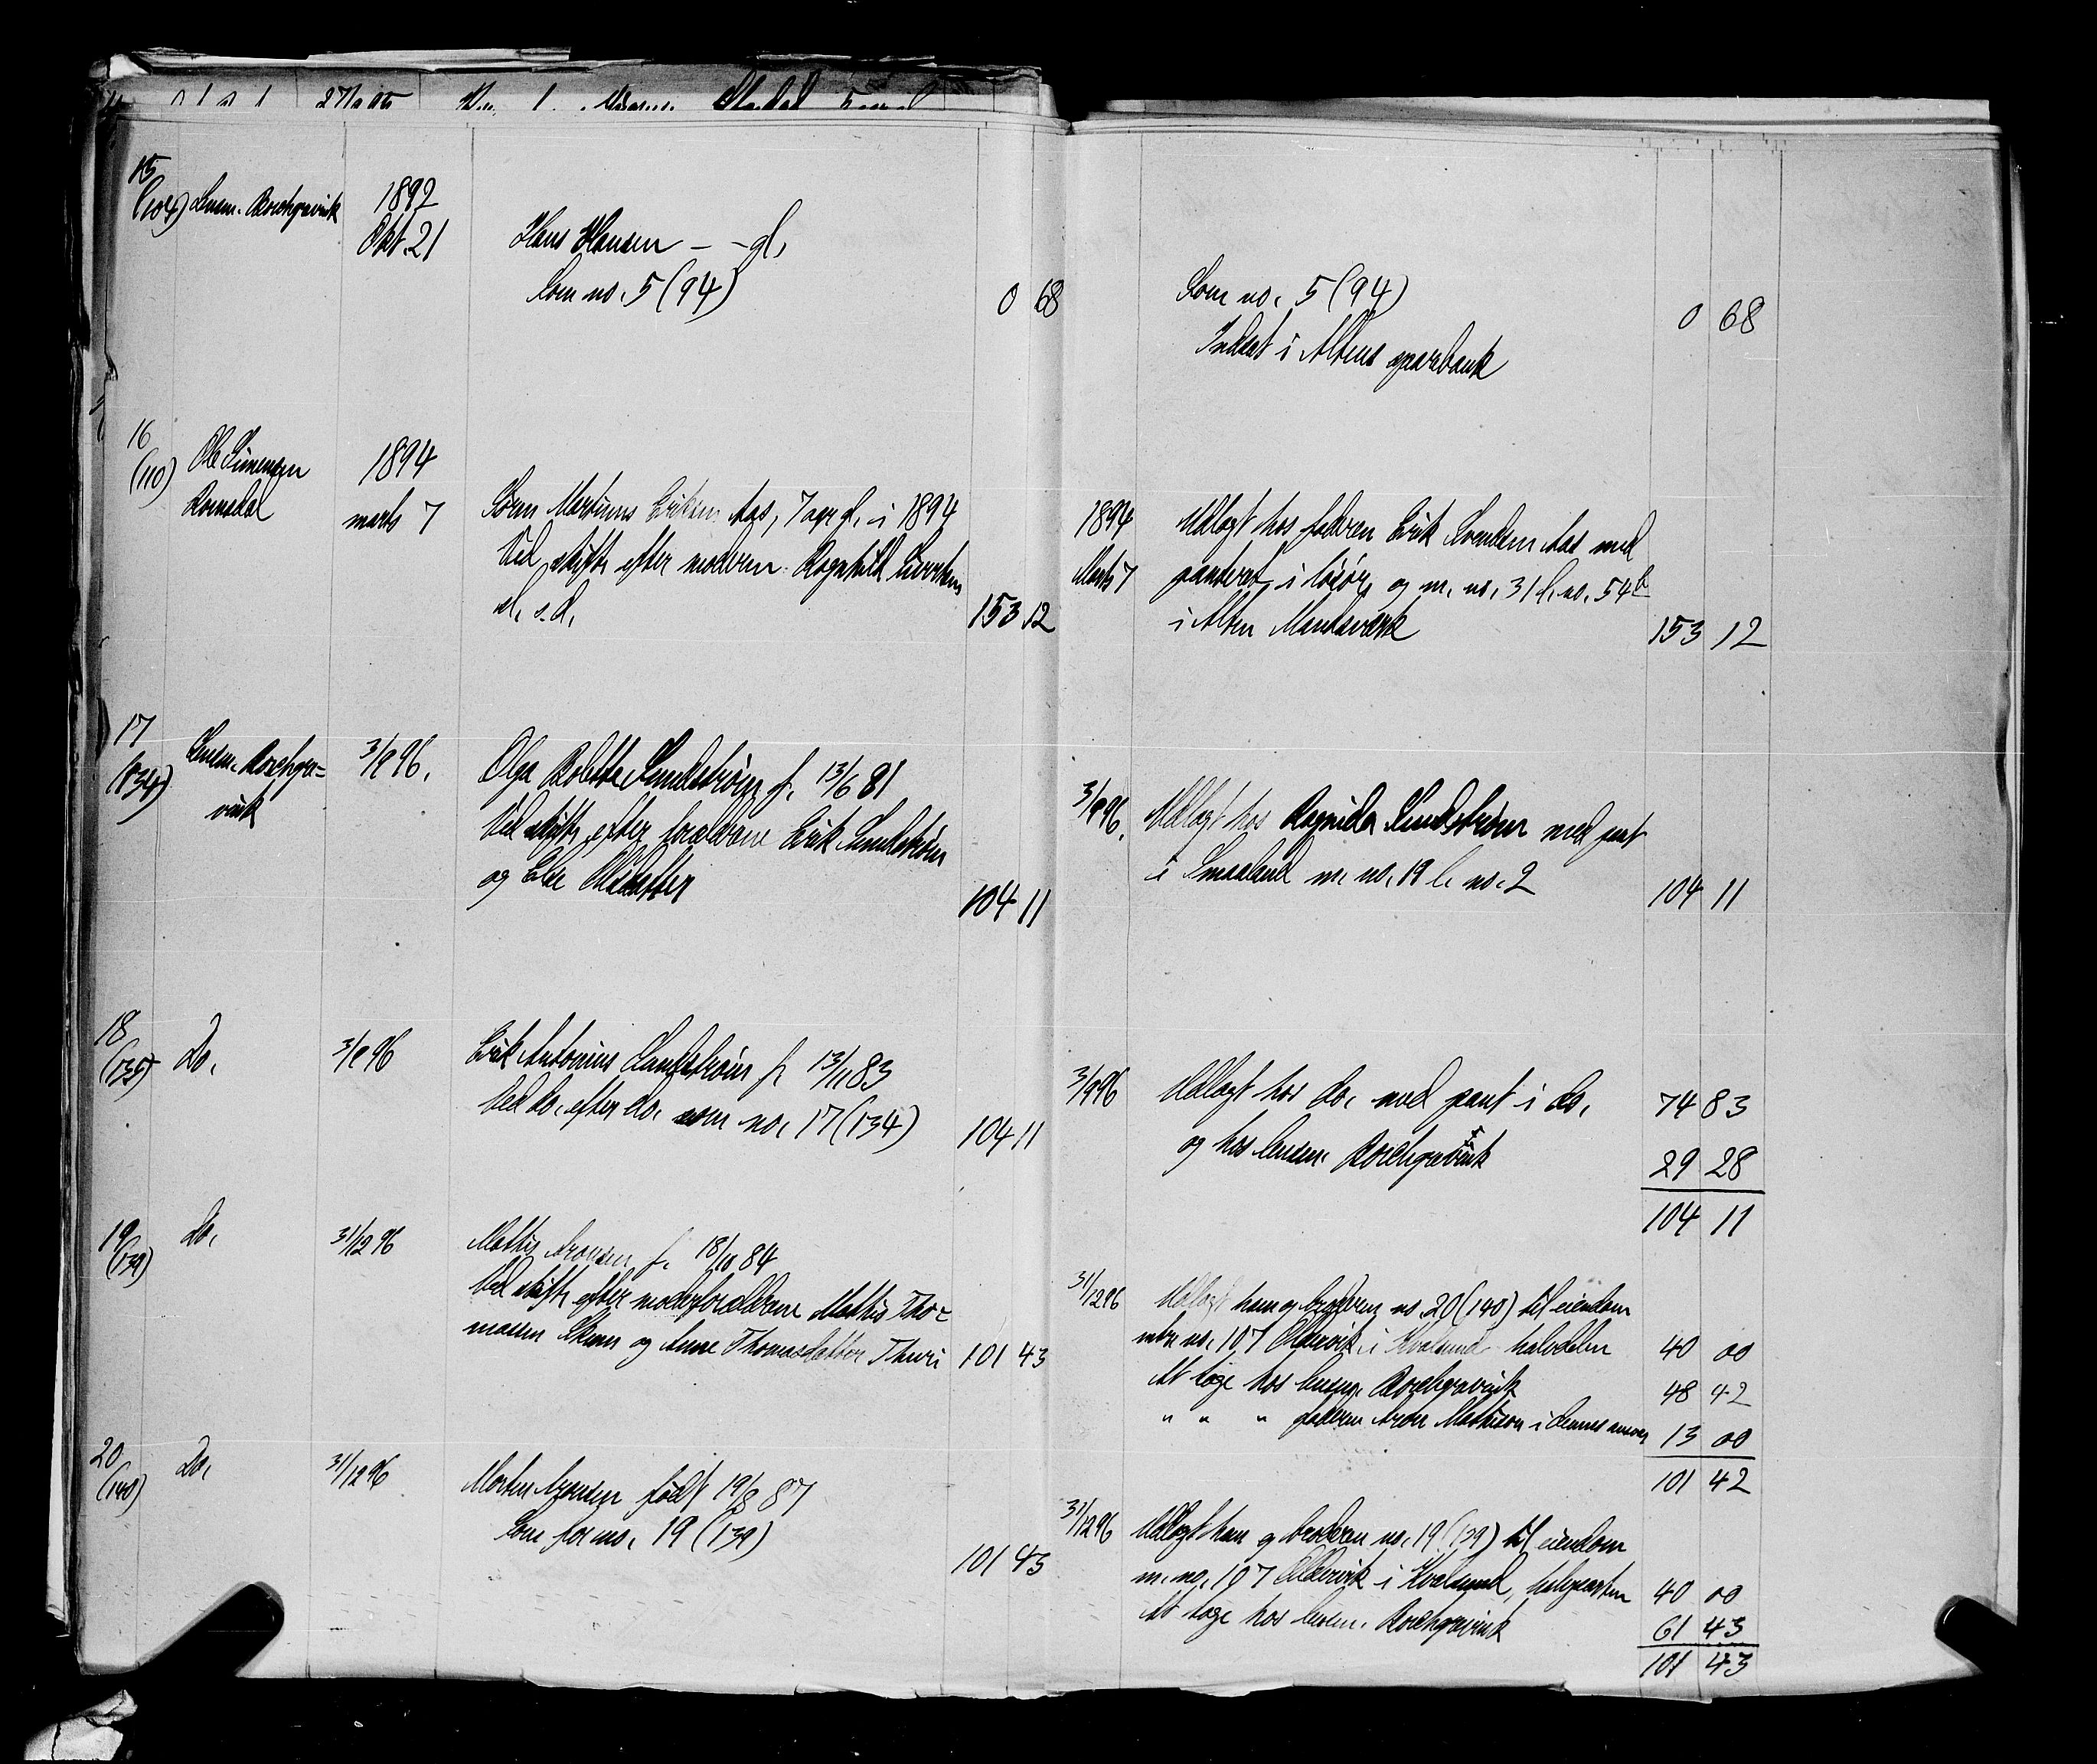 15
(104) Lensm. Borchgrevink
1892
Okt. 21
Hans Hansen – – gl.
Som no. 5 (94)
0 68
Som no. 5 (94)
0 68
Indsat i Altens sparebank
16
(110)
Ole Simensen
Romsdal
1894
marts 7
Søren Martinus Eriksen Aas, 7 aar gl. i 1894
Ved skifte efter moderen Ragnhild
d. s. d.
153 12
1894
Marts 7
Udlagt hos faderen Erik Svendsen Aas med
panteret i løsøre og m. no. 31 l. no. 54b
i Alten
153 12
17
(134)
Lensm. Borchgre=
vink
3/9 96.
Olga Bolette Sundstrøm f. 13/6 81
Ved skifte efter forældrene Erik Sundstrøm
og Else Olsdatter
104 11
3/9 96.
Udlagt hos Ragnida Sundstrøm med pant
i Smaalund m. no. 19 l. no. 2
104 11
18
(135)
Do.
3/9 96
Erik Antonius Sundstrøm f. 13/11 83
Ved do. efter do. som no. 17 (134)
104 11
3/9 96
Udlagt hos do. med pant i do.
74 83
og hos lensm. Borchgrevink
29 28
104 11
19
(139)
Do.
31/12 96
Mathis Aronsen f. 18/10 84
Ved skifte efter moderforældrene Mathis Tho=
massen Skum og Anne Thomasdatter Thuri
101 43
31/12 96
Udlagt ham og broderen no. 20 (140) til eiendom
mtr. no. 107 Oldervik i Kvalsund halvdelen
40 00
At tage hos lensm. Borchgrevink
48 42
" " " faderen Aron Mathisen i dennes
13 00
101 42
20
(140)
Do.
31/12 96
Morten Aronsen født 19/8 87
Som for no. 19 (139)
101 43
31/12 96
Udlagt ham og broderen no. 19 (139) til eiendom
m. no. 107 Oldervik i Kvalsund, halvparten
40 00
At tage hos lensm. Borchgrevink
61 43
101 43